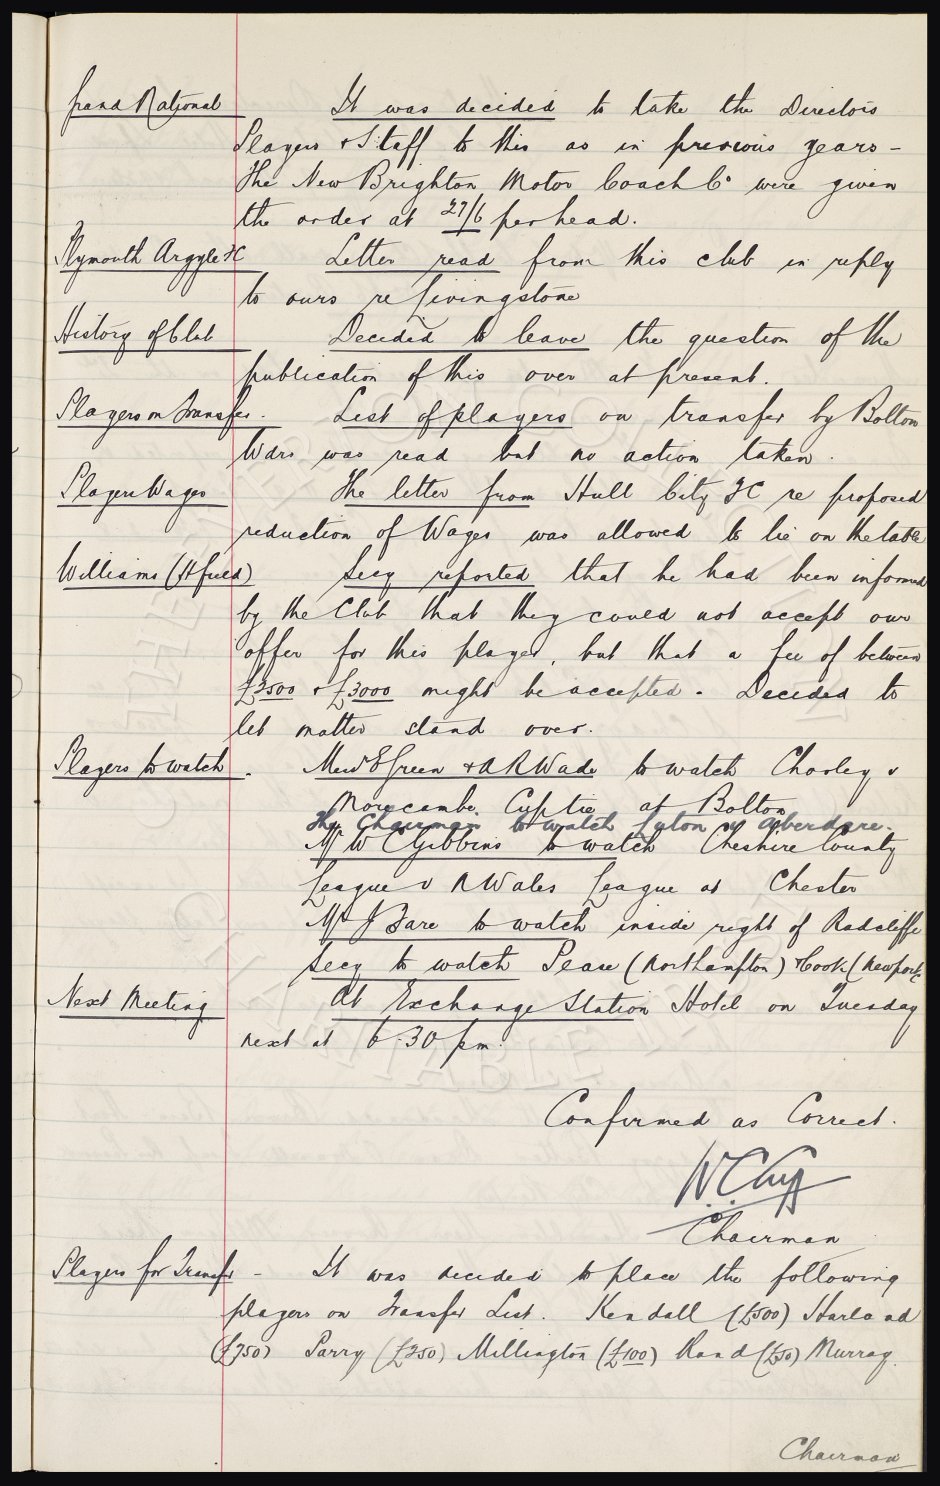 Grand National It was decided to take the Directors
Players & Staff to this as in previous years -
The New Brighton Motor Coach Co were given
the order at 27/6 per head.
Plymouth Argyle FC Letter read from this club in reply
to ours re Livingstone
History of Club Decided to leave the question of the
publication of this over at present.
Players on Transfer. List of players on transfer by Bolton
Wdrs was read but no action taken.
Players Wages The letter from Hull City FC re proposed
reduction of Wages was allowed to lie on the table
Williams (Hfield) Secy reported that he had been informed
by the Club that they could not accept our
offer for this player, but that a fee of between
£2500 & £3000 might be accepted. Decided to
let matter stand over.
Players to watch. E Green & A R Wade to watch Chorley v
Morecambe Cup tie at Bolton
The Chairman to watch v Aberdare.
Mr W C Gibbins to watch Cheshire County
League v N Wales League at Chester
Mr J Sare to watch inside right of Radcliffe
Secy to watch Pease (Northampton) & Cook (Newport
Next Meeting At Exchange Station Hotel on Tuesday
next at 6.30 pm.
Confirmed as Correct.
W.C. Cuff
Chairman
Players for Transfer - It was decided to place the following
players on Transfer List. Kendall (£500) Harland
(£750) Parry (£250) Millington (£100) Rand (£50) Murray.
Chairman